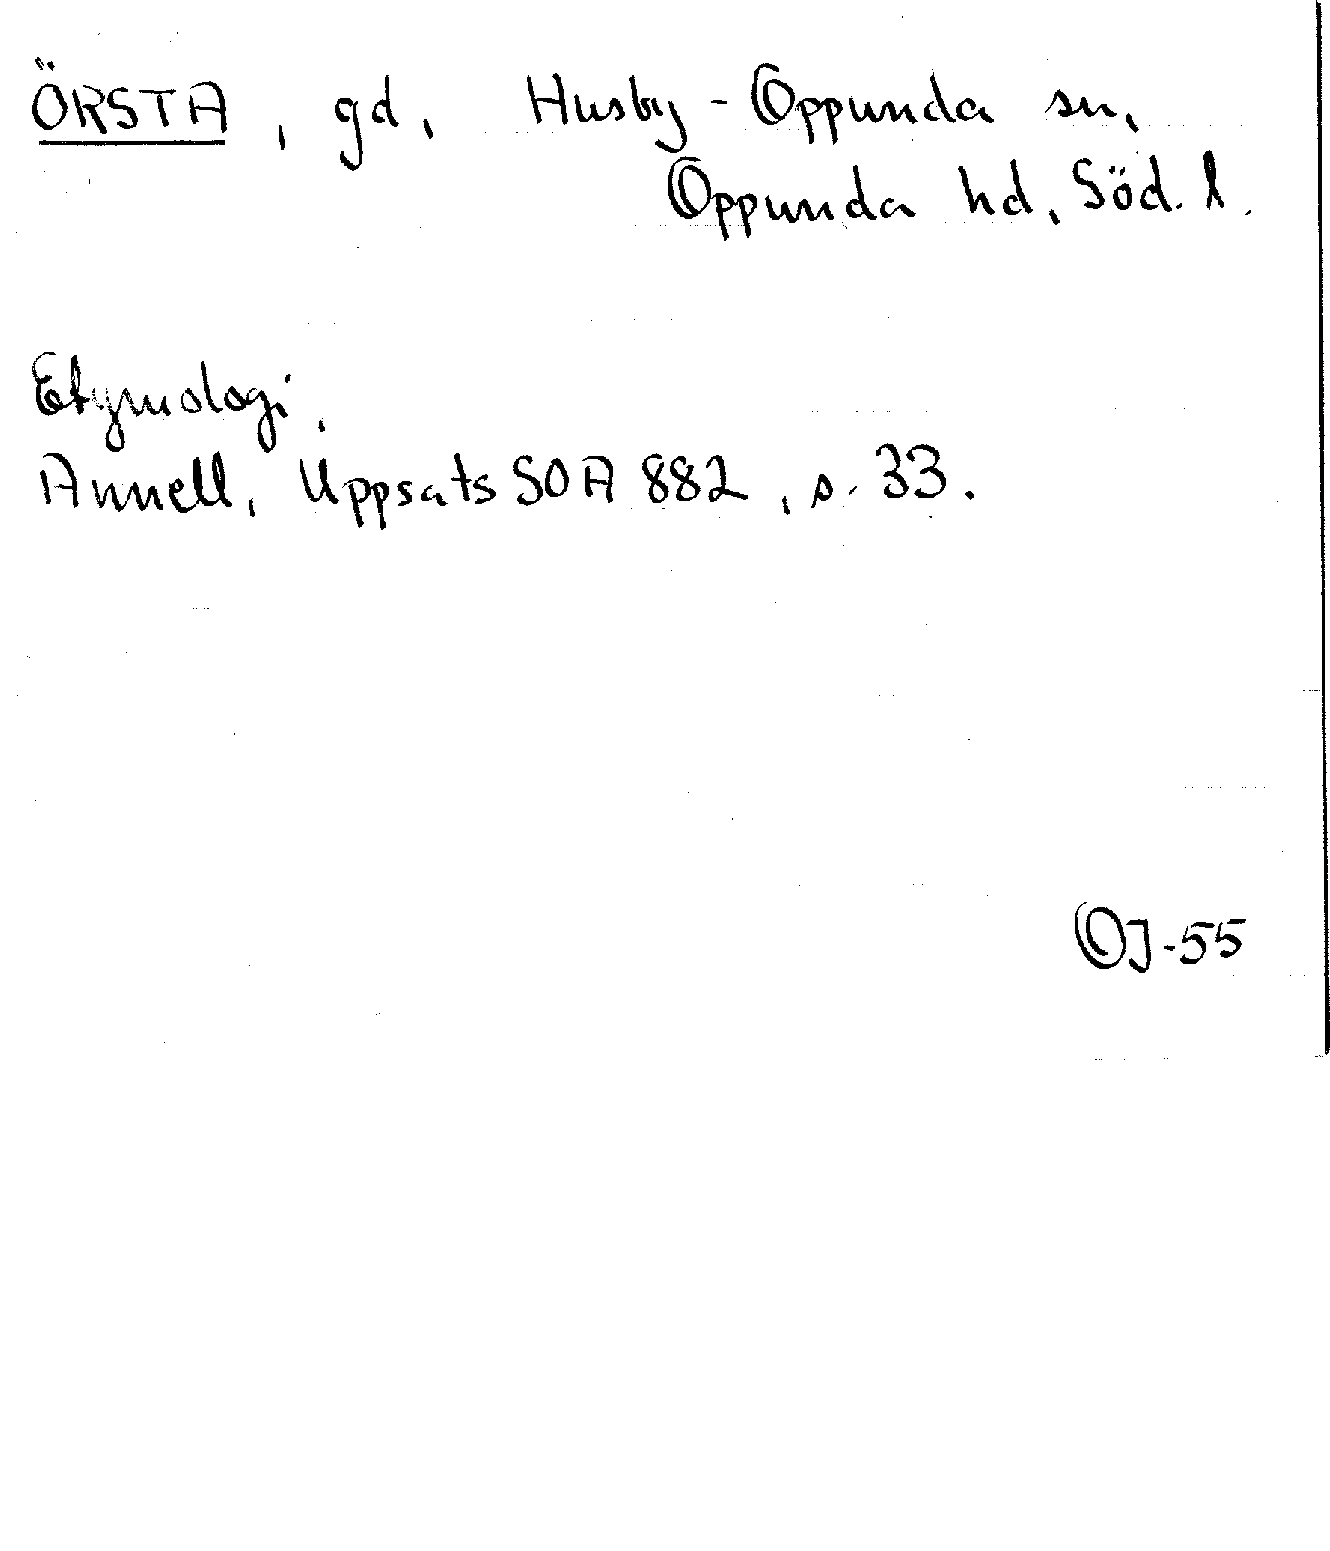 ÖRSTA, gd, Husby-Oppunda sn,
Oppunda hd, Söd. l.
Etymologi.
Annell, Uppsats SOA 882, s. 33.
OJ-55